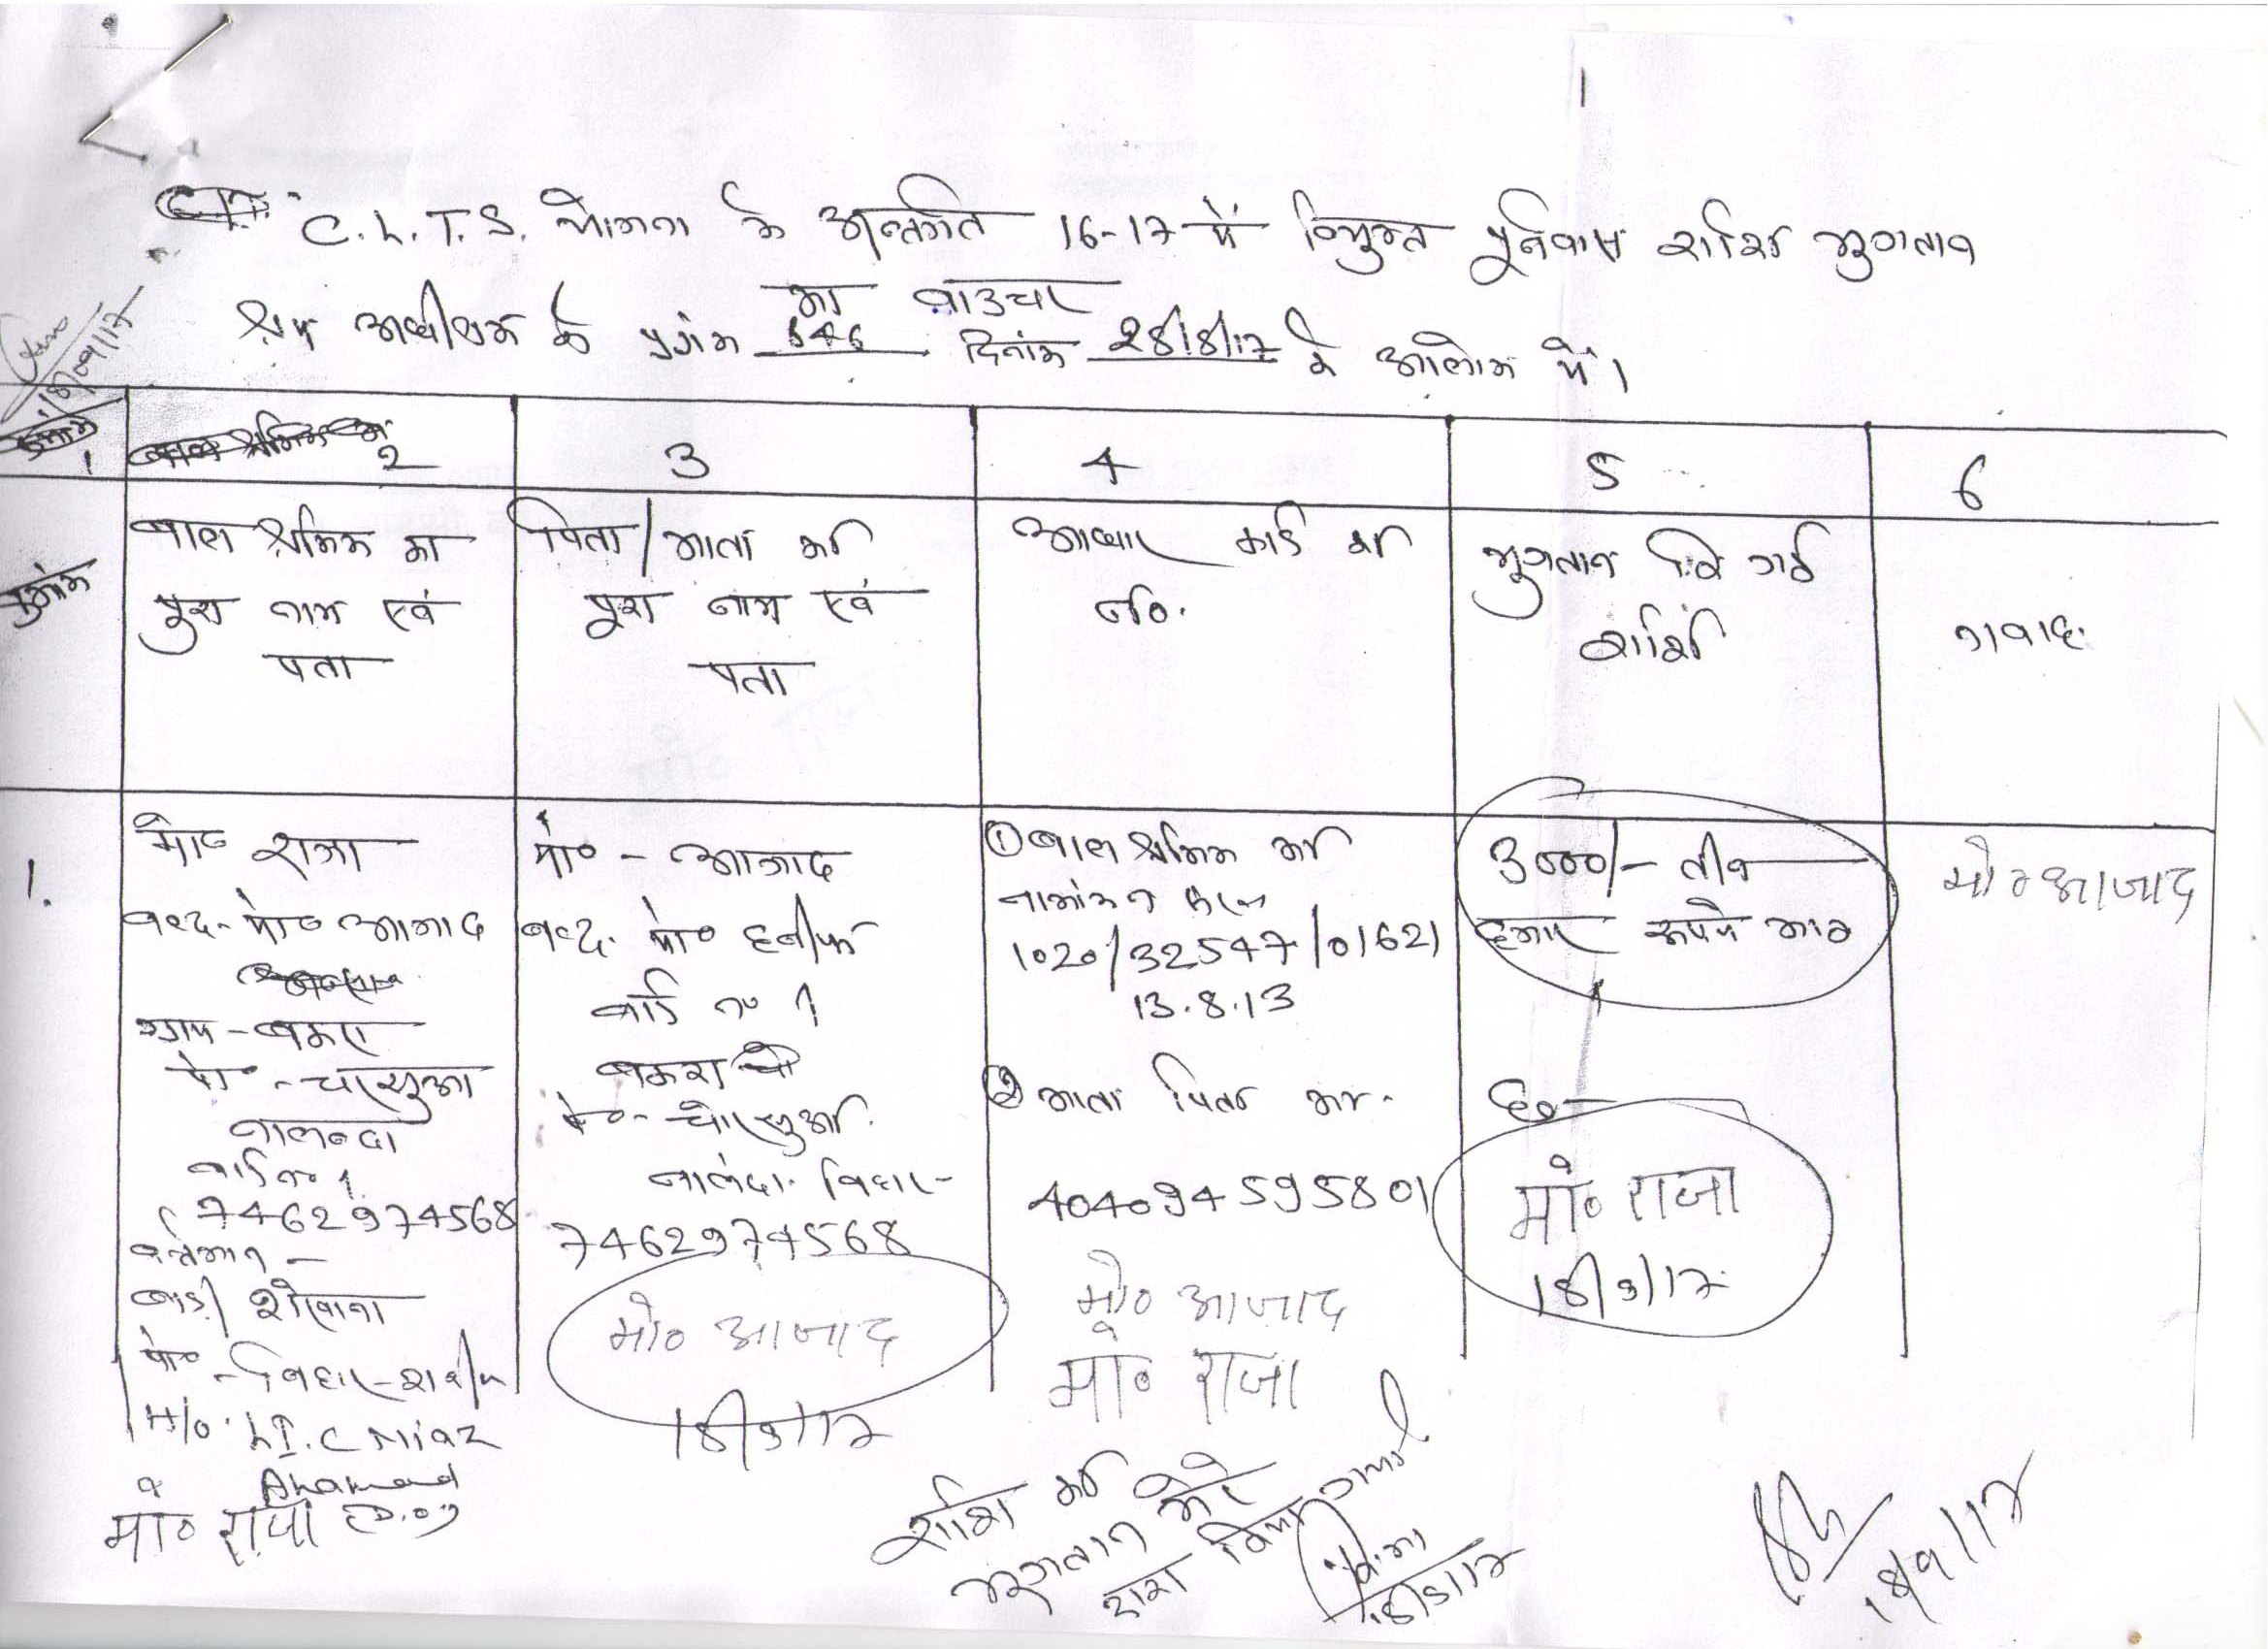 C.L.T.S. योजना के अन्तर्गत 16-17 में विमुक्त पुर्नवास राशि भुगतान
का वाउचर
श्रम अधीक्षक के पत्रांक 646 दिनांक 28/8/17 के आलोक में।
18/09/17
1 2 3 4 5 6
क्रमांक
बाल श्रमिक का
पुरा नाम एवं
पता
पिता/माता का
पूरा नाम एवं
पता
आधार कार्ड का
नं०.
भुगतान कि गई
राशि
गवाह.
1.
मो० राजा
वल्द- मो० आजाद
ग्राम - बकरा
पो० - चोरसुआ
नालन्दा
वार्ड न० 1
7462974568
वर्तमान -
बाड़ी शेखाना
पो० - बिहार-शरीफ
H/O. L.I.C Niaz
Ahamad
मो० राजा
मो० - आजाद
वल्द. मो० हनीफ
वार्ड न० 1
बकरा
पो० - चोरसुआ.
नालंदा. बिहार-
7462974568
मो० आजाद
18/9/17
① बाल श्रमिक का
नामांकन
1020/32547/01621
13.8.13
② माता पिता का.
404094595801
मो० आजाद
मो० राजा
3000/- तीन
हजार रूपये मात्र
ह०-
मो० राजा
18/9/17
मो० आजाद
राशि का
भुगतान मेरे
द्वारा किया गया
18/9/17
18/9/17